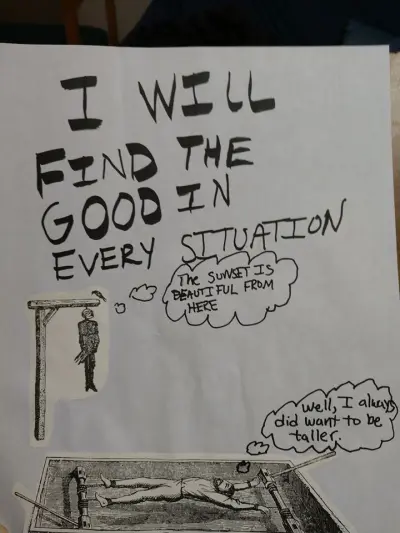 I WILL
FIND THE
GOOD IN
EVERY SITUATION
The SUNSET IS
BEAUTIFUL FROM
HERE
Well, I always
did want to be
taller.